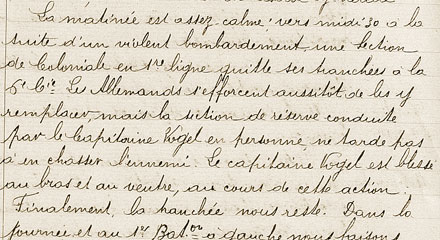 La matinée est assez calme : vers midi 30 à la
suite d'un violent bombardement une section
de Coloniale en 1re ligne quitte ses tranchées à la
6e Cie. Les Allemands s'efforcent aussitôt de les y
remplacer, mais la section de réserve conduite
par le Capitaine Vogel en personne ne tarde pas
à en chasser l'ennemi. Le capitaine Vogel est blessé
au bras et au ventre, au cours de cette action.
Finalement, la tranchée nous reste. Dans la
journée et au 1er Baton à gauche nous faisons